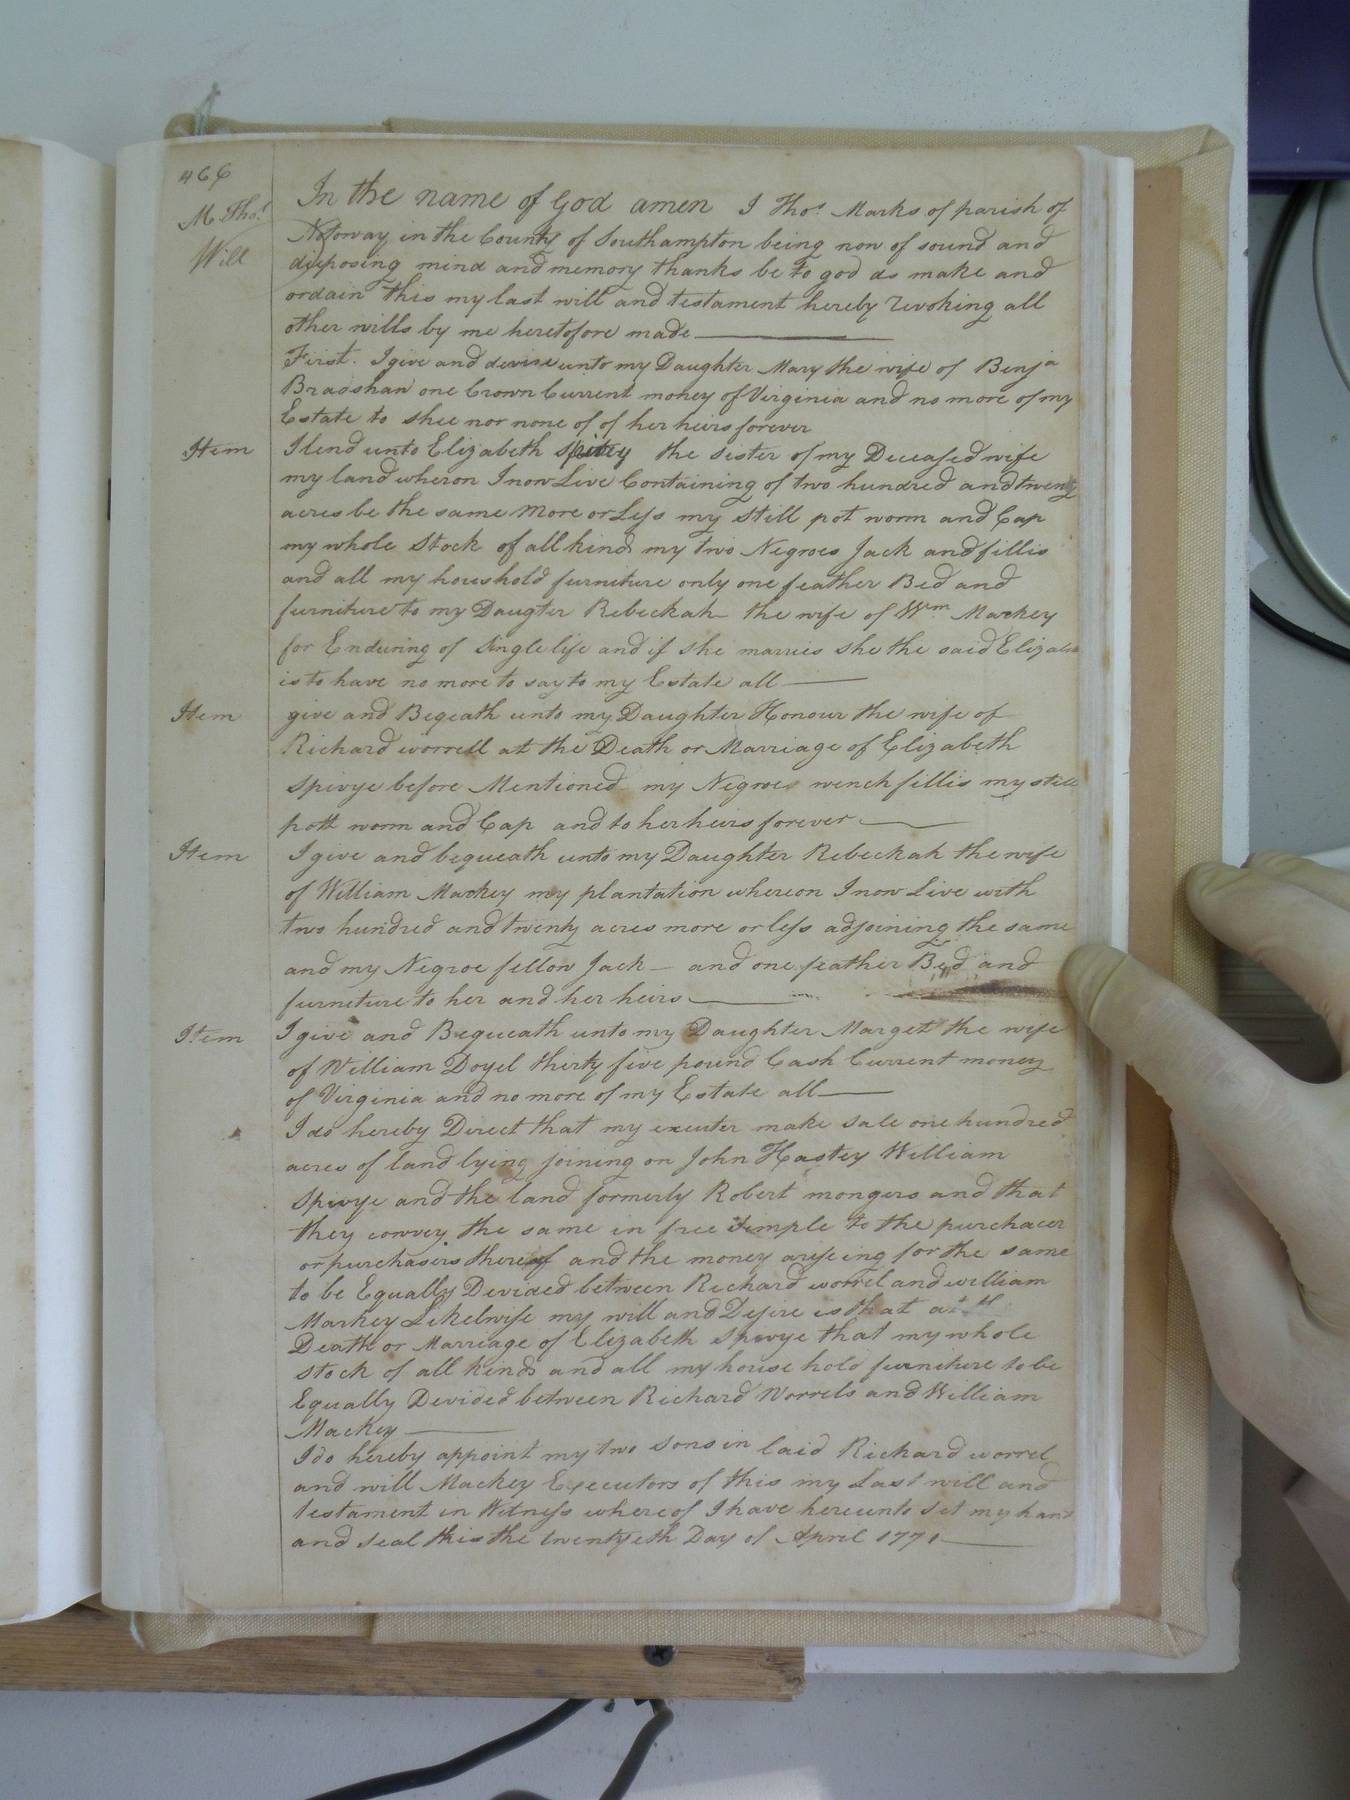 466
M. Thos.
Will
In the name of God amen I Thos. Marks of parish of
Nottoway in the County of Southampton being now of sound and
disposing mind and memory thanks be to god do make and
ordain this my last will and testament hereby revoking all
other wills by me heretofore made
First. I give and devise unto my Daughter Mary the wife of Benja
Bradshaw one Crown Current money of Virginia and no more of my
Estate to shee nor none of of her heirs forever
Item I lend unto Elizabeth Spivey the sister of my Deceased wife
my land wheron I now Live Containing of two hundred and twenty
acres be the same More or Less my Still pot worm and Cap
my whole Stock of all kind my two Negroes Jack and fillis
and all my houshold furniture only one feather Bed and
furniture to my Daugter Rebeckah the wife of Wm Markey
for Enduring of Single life and if she marries she the said Elizabe
is to have no more to say to my Estate all
Item give and Beqeath unto my Daughter Honour the wife of
Richard worrell at the Death or Marriage of Elizabeth
Spivye before Mentioned my Negroe wench fillis my still
pott worm and Cap and to her heirs forever
Item I give and bequeath unto my Daughter Rebeckah the wife
of William Markey my plantation whereon I now Live with
two hundred and twenty acres more or less adjoining the same
and my Negroe fellow Jack and one feather Bed and
furniture to her and her heirs
Item I give and Bequeath unto my Daughter Marget the wife
of William Doyel thirty five pound Cash Current money
of Virginia and no more of my Estate all
I do hereby Direct that my executer make sale one hundred
acres of land lying joining on John Hastey William
Spivye and the land formerly Robert mongers and that
they convey the same in free Simple to the purchacer
or purchasers thereof and the money ariseing for the same
to be Equally Devided between Richard worrel and william
Markey Likelwise my will and Desire is that at
Death or Marriage of Elizabeth Spivye that my whole
stock of all kinds and all my house hold furniture to be
Equally Devided between Richard Worrels and William
Mackey
I do hereby appoint my two sons in laid Richard worrel
and will Mackey Executors of this my Last will and
testament in Witness whereof I have hereunto set my hand
and seal this the twentyeth Day of April 1771